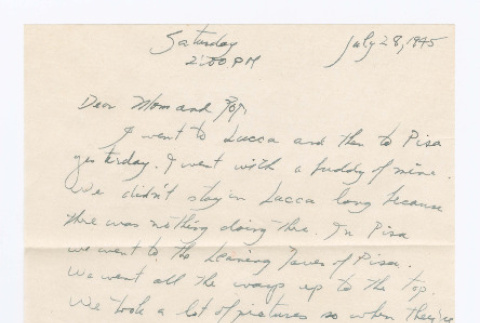 Saturday July 28, 1945
2:00 PM
Dear Mom and Pop,
I went to Lucca and then to Pisa
yesterday. I went with a buddy of mine.
We didn't stay in Lucca long because
there was nothing doing there. In Pisa
we went to the Leaning Tower of Pisa.
We went all the way up to the top.
We took a lot of pictures so when they're